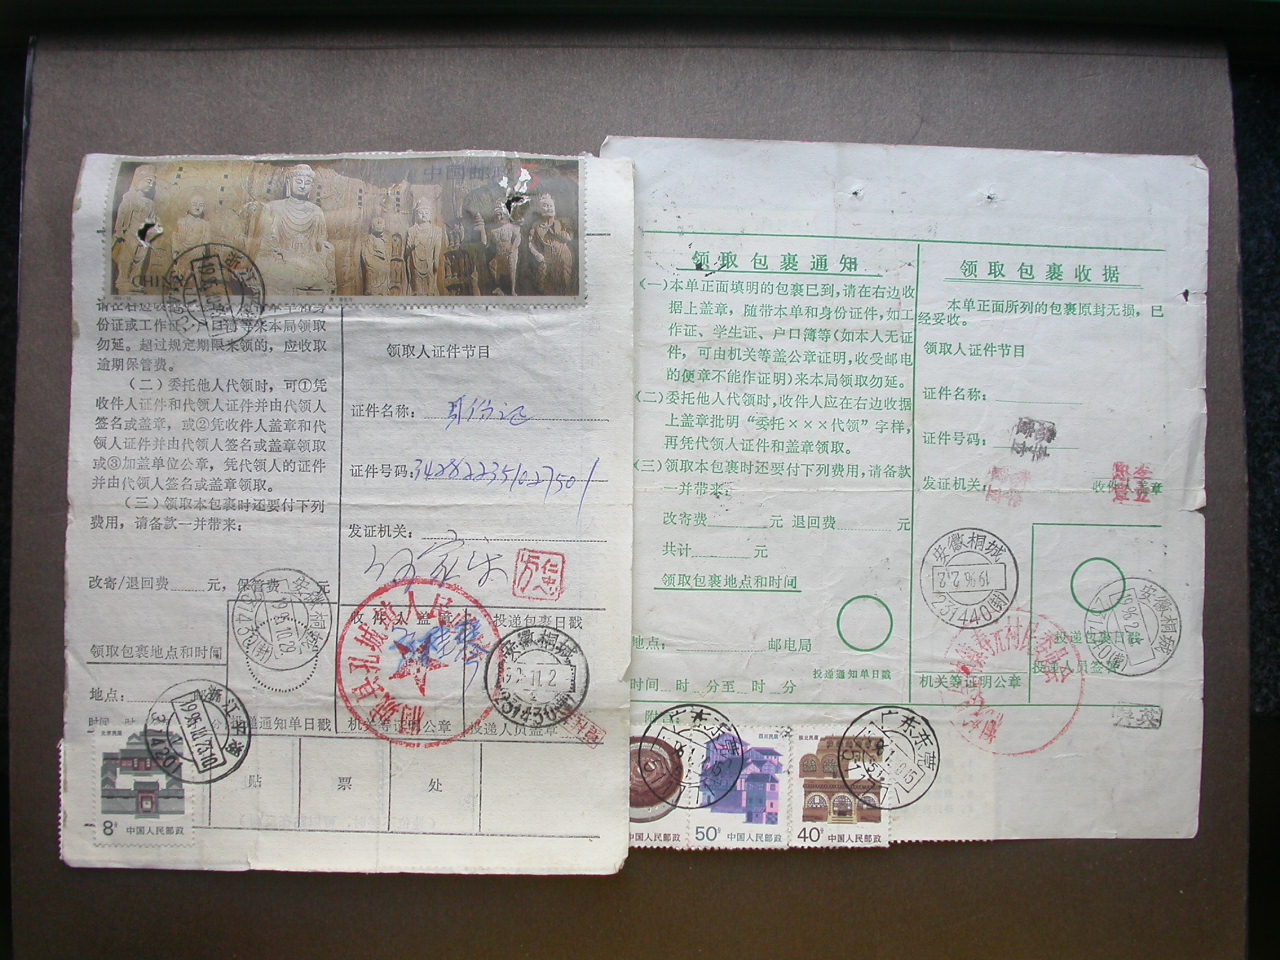 中国邮政
CHINA
份证或工作证、户口簿等来本局领取
勿延。超过规定期限来领的，应收取
逾期保管费。
（二）委托他人代领时，可①凭
收件人证件和代领人证件并由代领人
签名或盖章，或②凭收件人盖章和代
领人证件并由代领人签名或盖章领取
或③加盖单位公章，凭代领人的证件
并由代领人签名或盖章领取。
（三）领取本包裹时还要付下列
费用，请备款一并带来：
改寄/退回费 元，保管费 元
领取包裹地点和时间
地点：
投递通知单日戳
领取人证件节目
证件名称： 身份证
证件号码：
发证机关：
收件人盖章
投递包裹日戳
机关等证明公章
投递人员盖章
贴 票 处
安徽桐城
北京民居
8分 中国人民邮政
领取包裹通知
（一）本单正面填明的包裹已到，请在右边收
据上盖章，随带本单和身份证件，如工
作证、学生证、户口簿等（如本人无证
件，可由机关等盖公章证明，收受邮电
的便章不能作证明）来本局领取勿延。
（二）委托他人代领时，收件人应在右边收据
上盖章批明“委托×××代领”字样，
再凭代领人证件和盖章领取。
（三）领取本包裹时还要付下列费用，请备款
一并带来：
改寄费 元 退回费 元
共计 元
领取包裹地点和时间
地点： 邮电局
投递通知单日戳
时间 时 分至 时 分
附言：
领取包裹收据
本单正面所列的包裹原封无损，已
经妥收。
领取人证件节目
证件名称：
证件号码：
发证机关：
收件人盖章
安徽桐城
1996.2.12
231440
投递包裹日戳
投递人员签章
机关等证明公章
广东东莞
广东东莞
中国人民邮政
四川民居
50分 中国人民邮政
陕北民居
40分 中国人民邮政